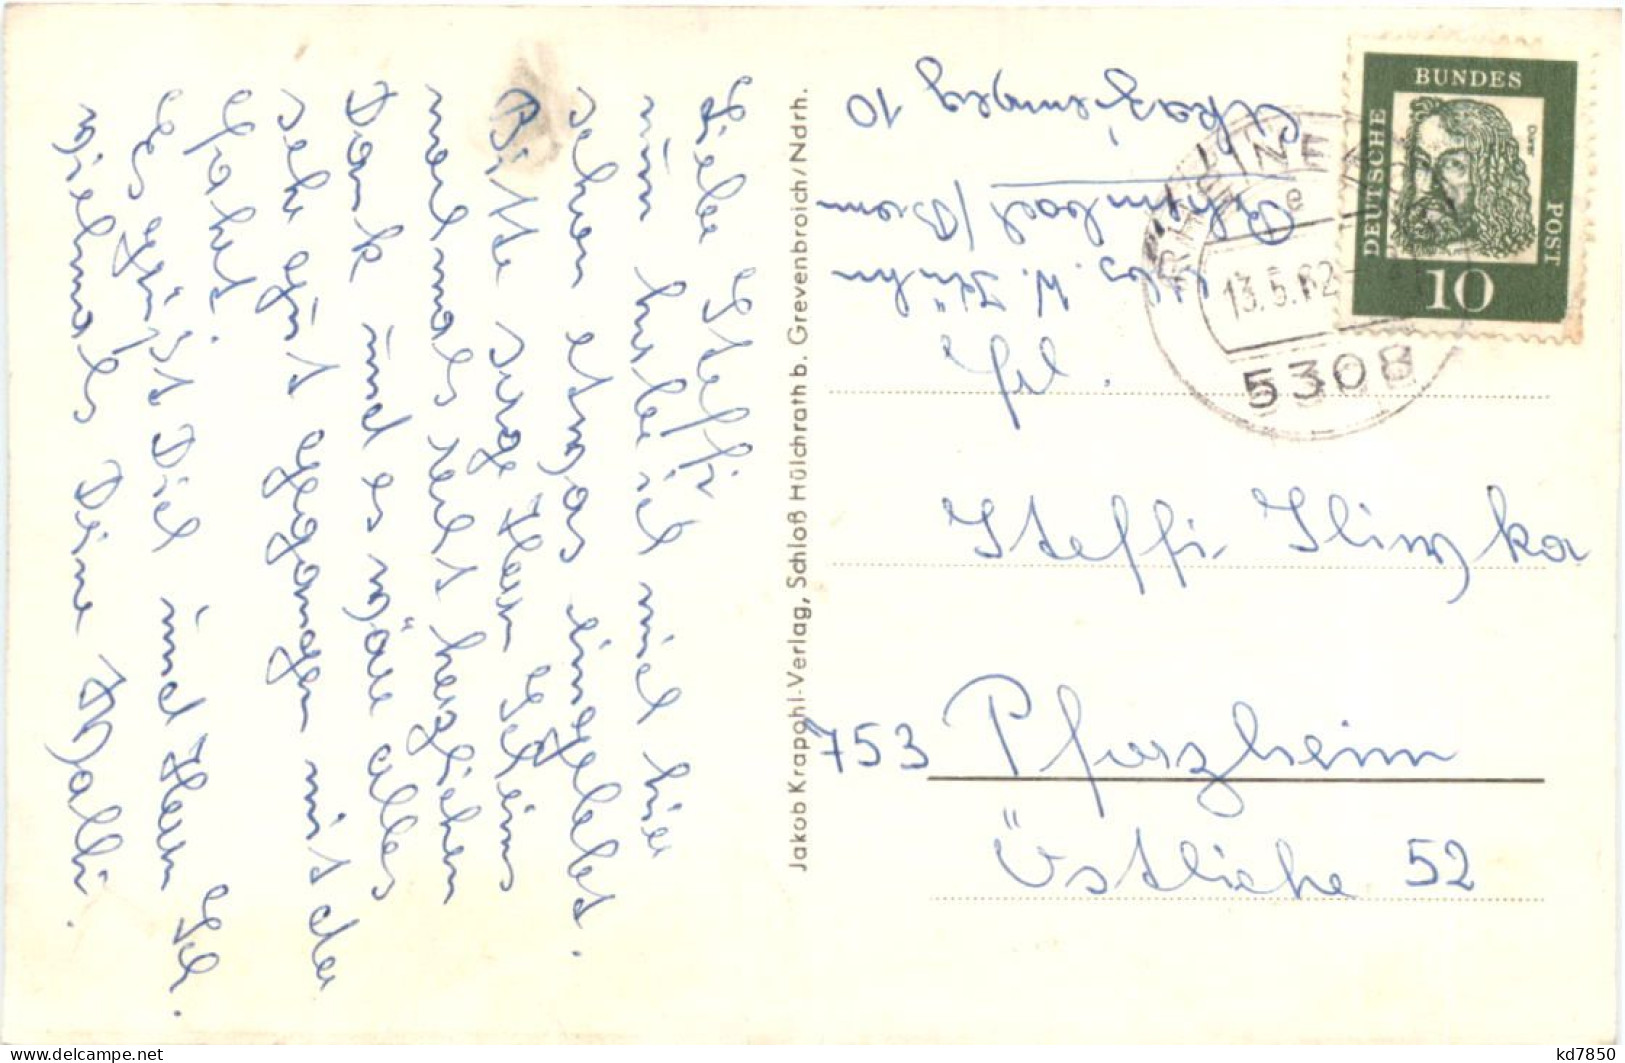 Liebe Steffi
nun habe ich mich hier
schon etwas eingelebt.
Bitte sage Herrn
nochmals recht herzlichen
Dank und es wäre alles
sehr gut gegangen mit der
Fahrt.
Es grüßt Dich und Herrn
vielmals Deine Walli.
Jakob Krapohl-Verlag, Schloß Hülchrath b. Grevenbroich/Ndrh.
Abs. W. Kühn
Rheinbach/Bonn
Akazienweg 10
DEUTSCHE
BUNDES
POST
Dürer
10
RHEINBACH
e
13.5.62
5308
Frl.
Steffi Sliwka
753 Pforzheim
Östliche 52
kd7850